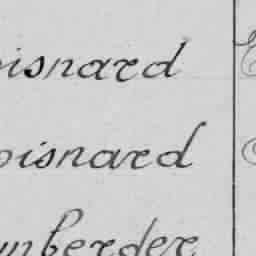 oisnard
oisnard
mberder